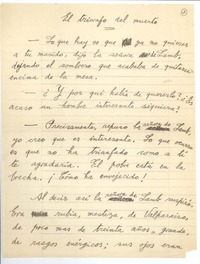 El triunfo del muerto
— Lo que hay es que ya no quieres
a tu marido, dijo la señora Lamb,
dejando el sombrero que acababa de quitarse
encima de la mesa.
— ¿Y por qué había de quererlo? ¿Es
acaso un hombre interesante siquiera?
— Precisamente, repuso la señora de Lamb,
yo creo que es interesante. Lo que ocurre
es que no ha triunfado como a ti
te agradaría. El pobre está en la
brecha. ¡Cómo ha envejecido!
Al decir así la señora de Lamb suspiró.
Era rubia, mestiza, de Valparaíso,
de poco mas de treinta años, grande,
de rasgos enérgicos; sus ojos eran